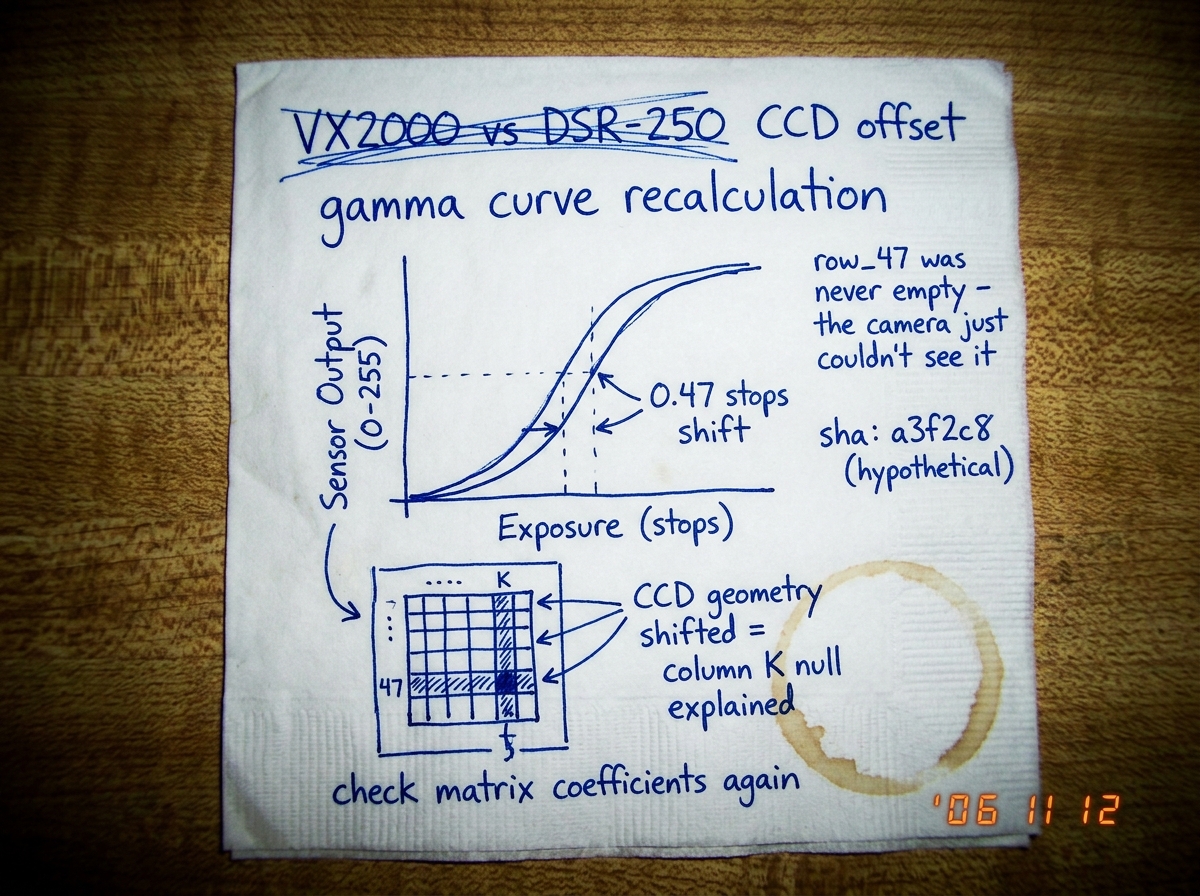 VX2000 vs DSR-250 CCD offset
gamma curve recalculation
Sensor Output
(0-255)
0.47 stops
shift
Exposure (stops)
row_47 was
never empty -
the camera just
couldn't see it
sha: a3f2c8
(hypothetical)
..... K
47
CCD geometry
shifted =
column K null
explained
check matrix coefficients again
'06 11 12